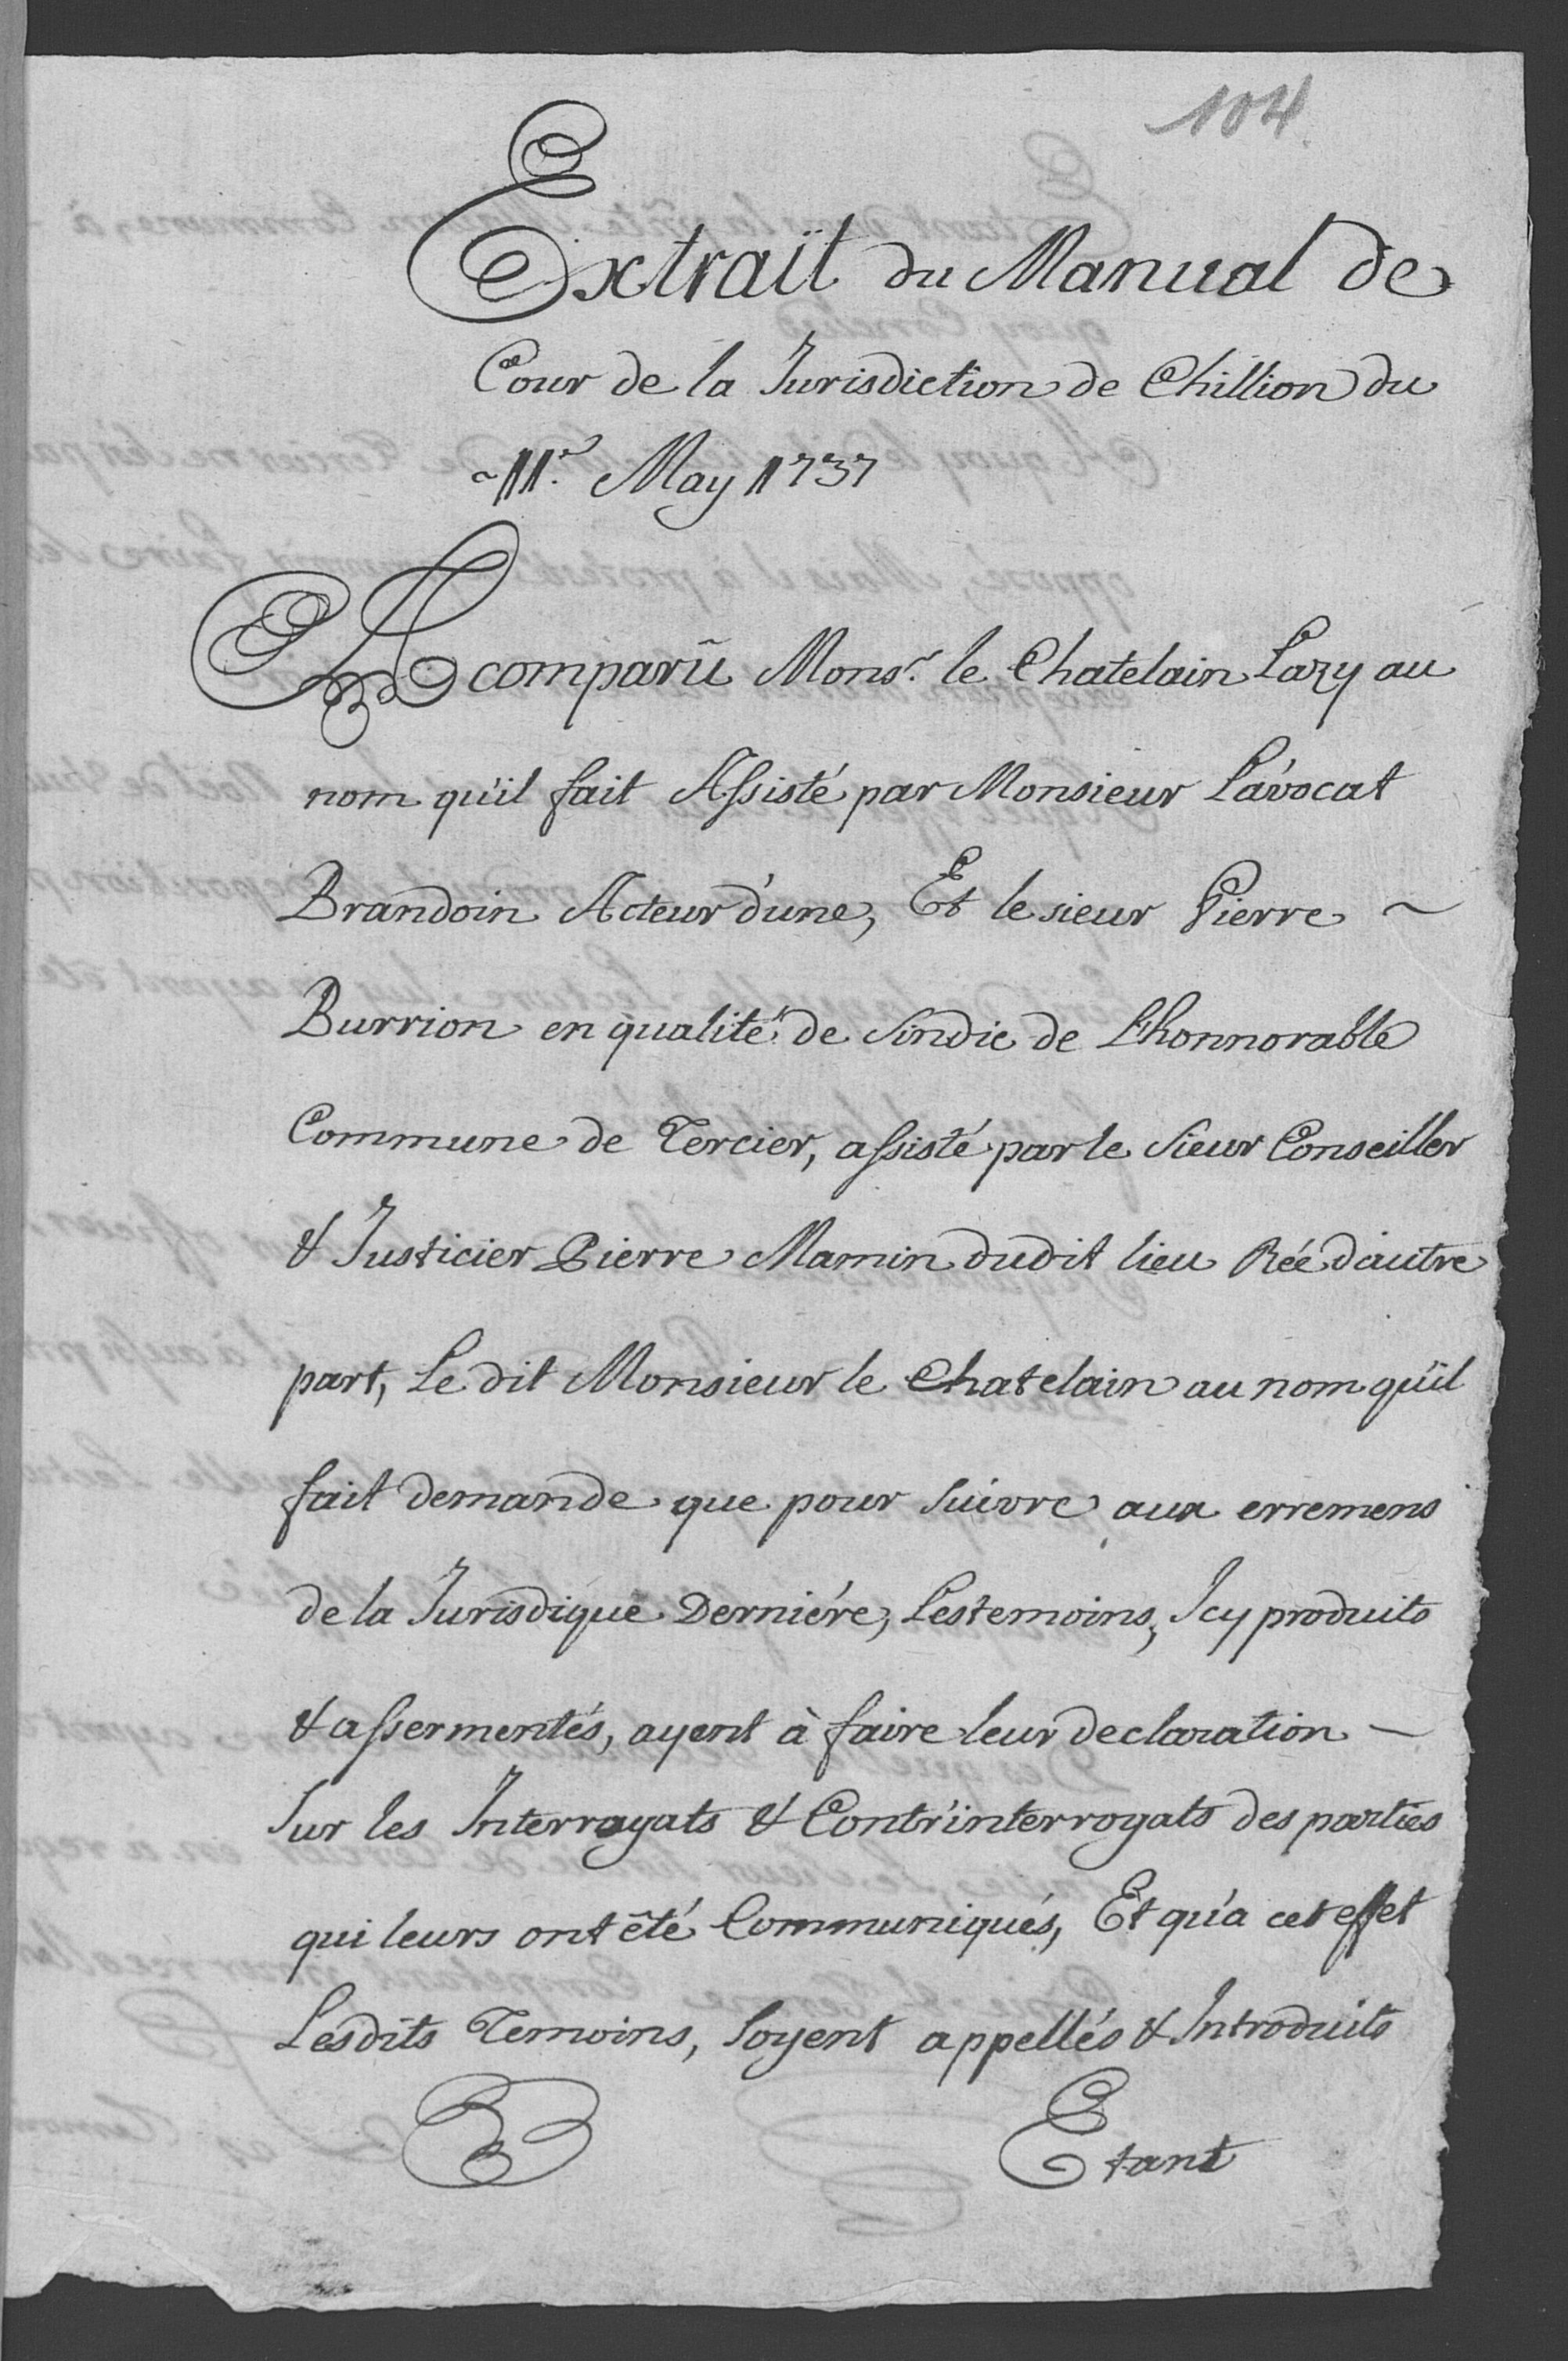 104
Extrait du Manual de
Cour de la Jurisdiction de Chillion du
11.e May 1737
A comparû Mons.r le Chatelain Lazy au
nom qu'il fait Assisté par Monsieur L'avocat
Brandoin Acteur d'une, Et le sieur Pierre ~
Burrion en qualité de Sindic de L'honnorable
Commune de Tercier, assisté par le Sieur Conseiller
& Justicier Pierre Mamin dudit lieu Rée d'autre
part, Le dit Monsieur le Chatelain au nom qu'il
fait demande que pour suivre aux erremens
de la Jurisdique Derniére, Les temoins, Icy produits
& assermentés, ayent à faire leur declaration —
Sur les Interrogats & Contr'interrogats des parties
qui leurs ont êté Communiqués, Et qu'a cet effet
Lesdits Temoins, soyent appellés & Introduits
Etant